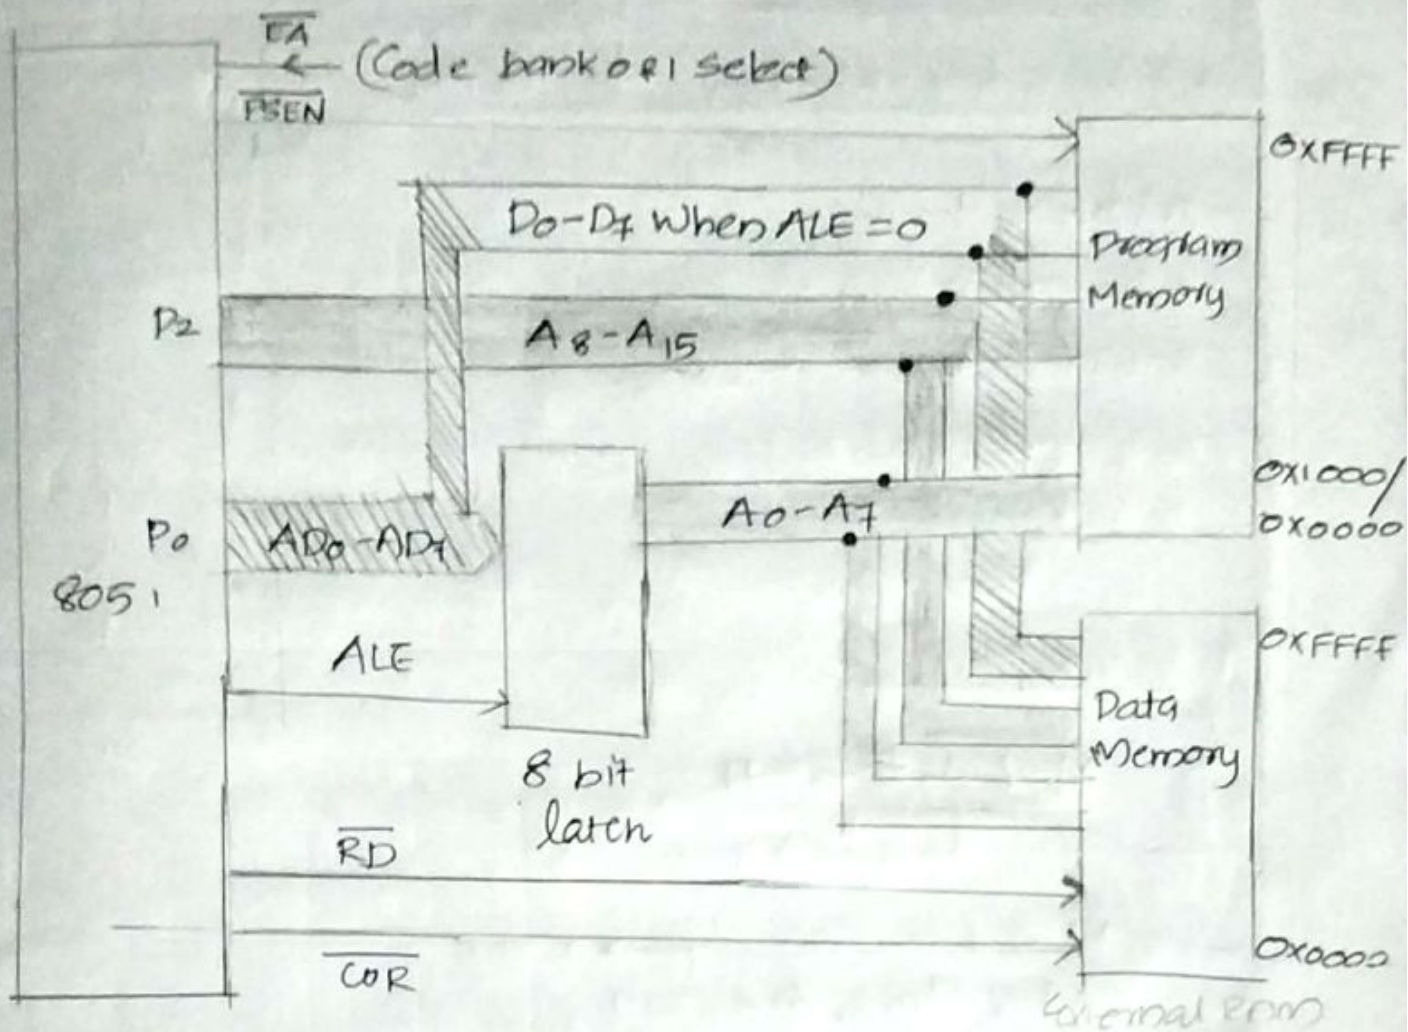 EA
(Code bank 0 or 1 select)
PSEN
0XFFFF
D0-D7 When ALE=0
Program
Memory
P2
A8-A15
0X1000/
0X0000
A0-A7
P0
AD0-AD7
8051
ALE
0XFFFF
Data
Memory
8 bit
latch
RD
WR
0X0000